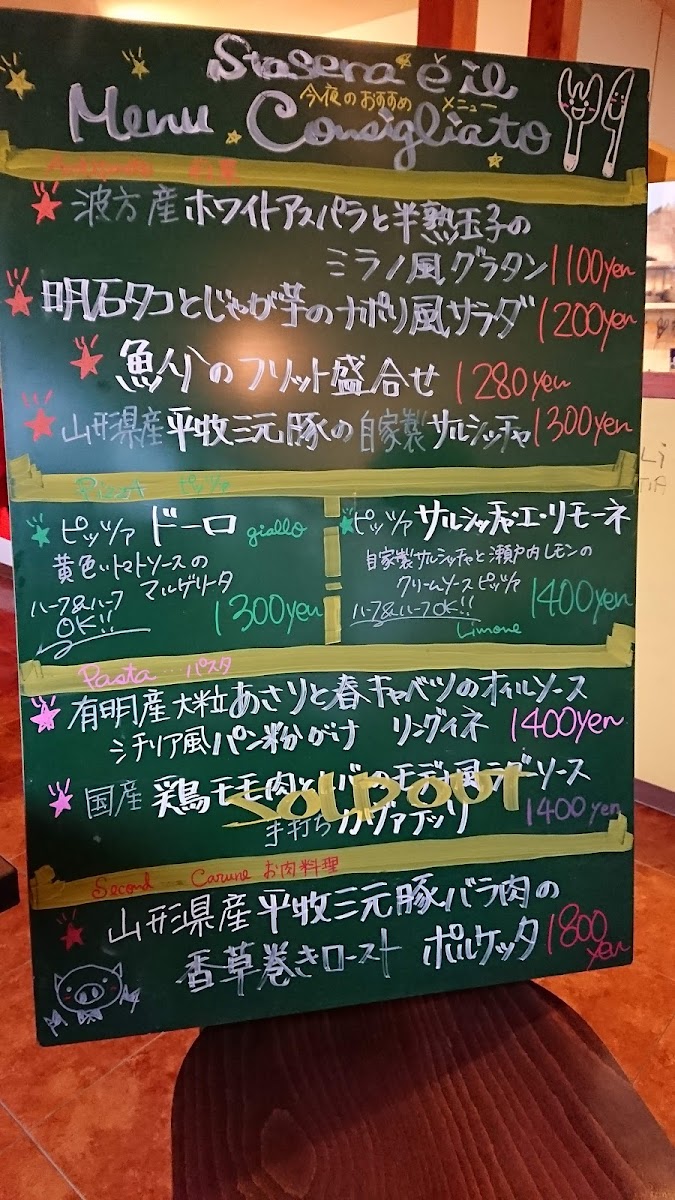 Stasera è il
今夜のおすすめ メニュー
Menu Consigliato
波方産 ホワイトアスパラと半熟玉子の
ミラノ風グラタン 1100yen
明石タコとじゃが芋のナポリ風サラダ 1200yen
のフリット盛合せ 1280yen
山形県産 平牧三元豚の自家製 サルシッチャ 1300yen
ピッツァ
ピッツァ ドーロ giallo
黄色いトマトソースの
マルゲリータ
ハーフ&ハーフ
OK!!
1300yen
ピッツァ サルシッチャ・エ・リモーネ
自家製サルシッチャと瀬戸内レモンの
クリームソースピッツァ
ハーフ&ハーフOK!!
1400yen
Limone
Pasta … パスタ
有明産大粒あさりと春キャベツのオイルソース
シチリア風パン粉がけ リングイネ 1400yen
国産 鶏モモ肉と のモデ ソース
SOLD OUT
手打ち 1400yen
Second Carune お肉料理
山形県産 平牧三元豚バラ肉の
香草巻きロースト ポルケッタ 1800
yen